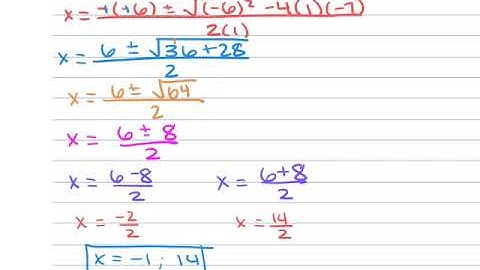 x = -(-6) ± √(-6)² - 4(1)(-7) / 2(1)
x = 6 ± √36+28 / 2
x = 6 ± √64 / 2
x = 6 ± 8 / 2
x = 6-8 / 2 x = 6+8 / 2
x = -2/2 x = 14/2
x = -1 ; 14